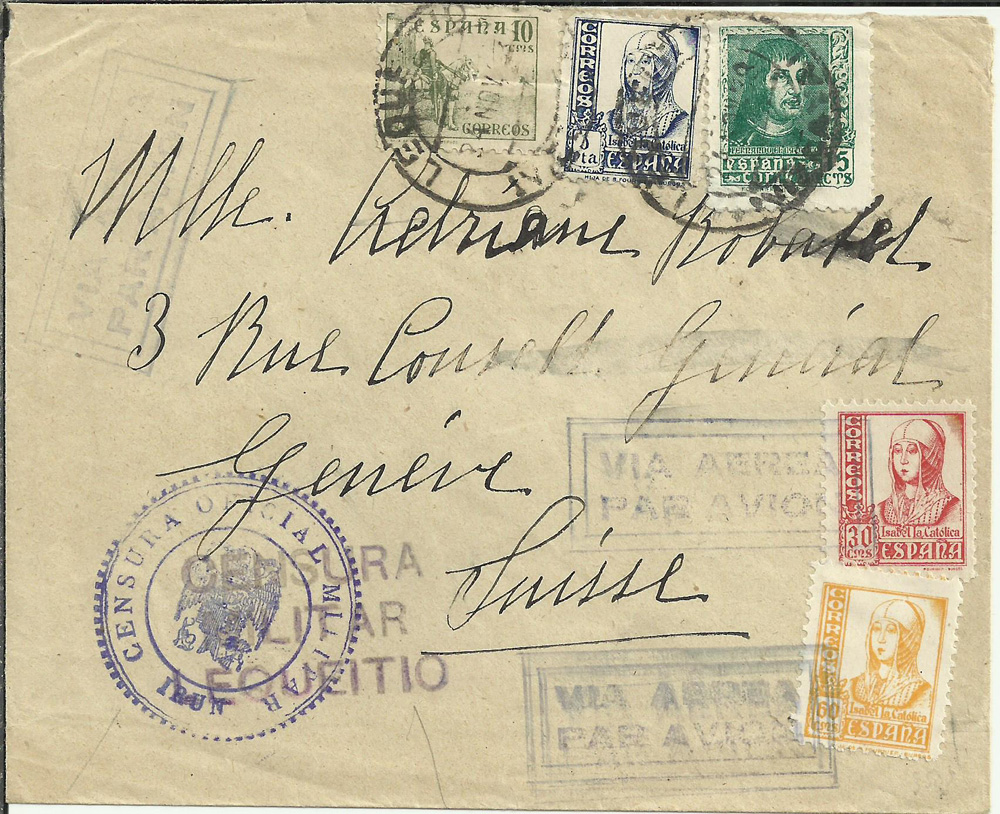 ESPAÑA 10
cts
CORREOS
CORREOS
1 Pta
Isabel la Católica
ESPAÑA
FERNANDO EL CATOLICO
ESPAÑA 15
CORREOS CTS
LEQUEITIO
NOV
VIA
PAR AVION
Mlle. Adriane Robatel
3 Rue Conseil Général
Genève
Suisse
VIA AEREA
PAR AVION
CORREOS
30
cms
Isabel la Católica
ESPAÑA
CENSURA OFICIAL MILITAR
IRUN
CENSURA
MILITAR
LEQUEITIO
VIA AEREA
PAR AVION
CORREOS
60
cms
Isabel la Católica
ESPAÑA